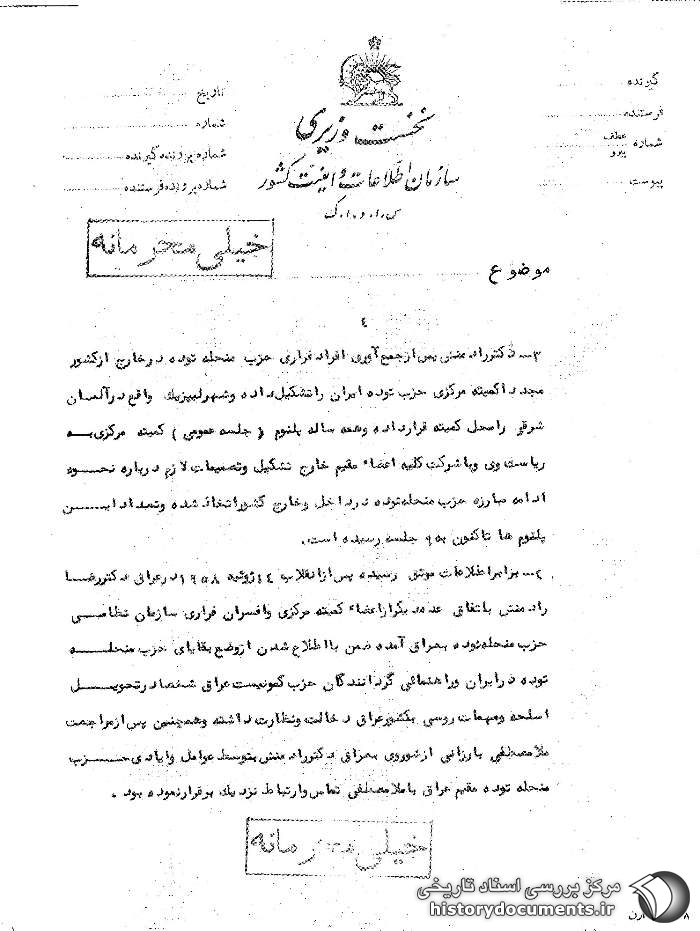 گیرنده
فرستنده
شماره عطف
پیرو
پیوست
نخست وزیری
سازمان اطلاعات و امنیت کشور
س.ا.و.ا.ک
تاریخ
شماره
شماره پرونده گیرنده
شماره پرونده فرستنده
خیلی محرمانه
موضوع
٤
۳ــ دکتر راد منش پس از جمع آوری افراد فراری حزب منحله توده در خارج از کشور
مجددا کمیته مرکزی حزب توده ایران را تشکیل داده و شهر لیپزیک واقع در آلمان
شرقی را محل کمیته قرار داده و همه ساله پلنوم ( جلسه عمومی ) کمیته مرکزی به
ریاست وی و با شرکت کلیه اعضاء مقیم خارج تشکیل و تصمیمات لازم درباره نحوه
ادامه مبارزه حزب منحله توده در داخل و خارج کشور اتخاذ شده و تعداد این
پلنوم ها تاکنون به ۹ جلسه رسیده است.
برابر اطلاعات موثق رسیده پس از انقلاب ١٤ ژوئیه ۱۹۵۸ در عراق دکتر رضا
راد منش باتفاق عده دیگر از اعضاء کمیته مرکزی و افسران فراری سازمان نظامی
حزب منحله توده بعراق آمده ضمن با اطلاع شدن از وضع بقایای حزب منحله
توده در ایران و راهنمائی گردانندگان حزب کمونیست عراق شخصا در تحویل
اسلحه و مهمات روسی بکشور عراق دخالت و نظارت داشته و همچنین پس از مراجعت
ملا مصطفی بارزانی از شوروی بعراق دکتر راد منش بتوسط عوامل و ایادی حزب
منحله توده مقیم عراق با ملا مصطفی تماس و ارتباط نزدیک برقرار نموده بود .
خیلی محرمانه
مرکز بررسی اسناد تاریخی
historydocuments.ir